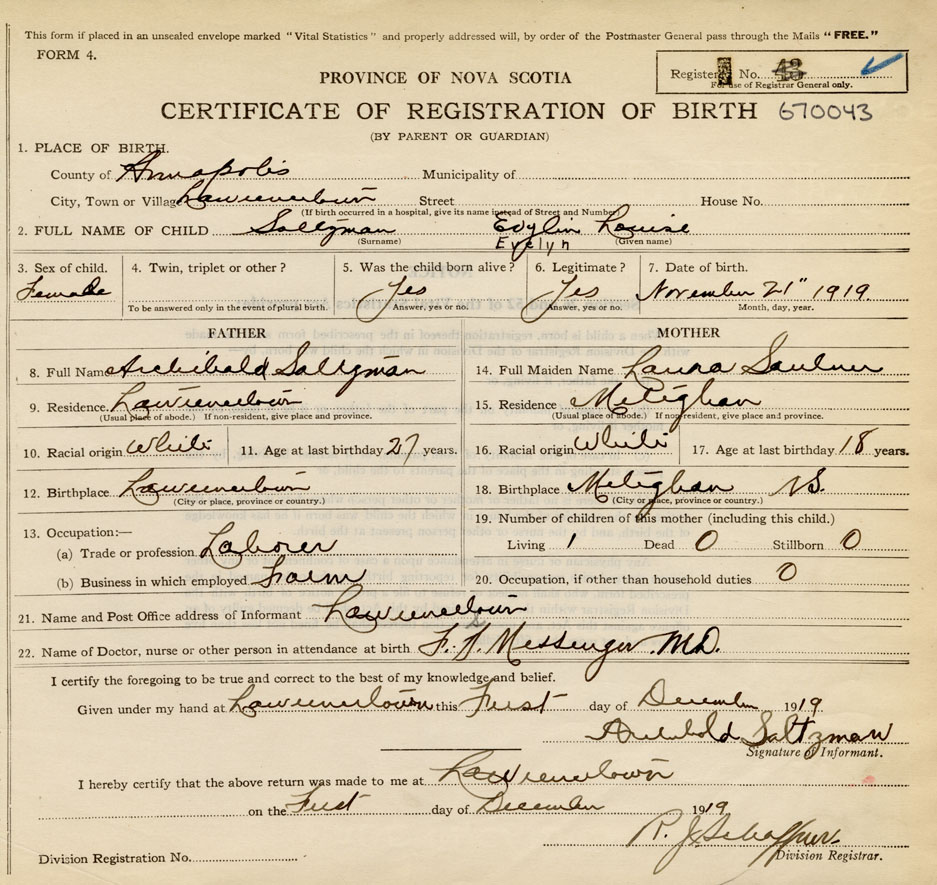 This form if placed in an unsealed envelope marked "Vital Statistics" and properly addressed will, by order of the Postmaster General pass through the Mails "FREE."
FORM 4.
Registered No. 43
For use of Registrar General only.
PROVINCE OF NOVA SCOTIA
CERTIFICATE OF REGISTRATION OF BIRTH 670043
(BY PARENT OR GUARDIAN)
1. PLACE OF BIRTH.
County of Annapolis Municipality of
City, Town or Village Lawrencetown Street House No.
(If birth occurred in a hospital, give its name instead of Street and Number)
2. FULL NAME OF CHILD Saltzman Evylin Louise
(Surname) Evelyn (Given name)
3. Sex of child. 4. Twin, triplet or other? 5. Was the child born alive? 6. Legitimate? 7. Date of birth.
Female Yes Yes November 21" 1919.
To be answered only in the event of plural birth. Answer, yes or no. Answer, yes or no. Month, day, year.
FATHER MOTHER
8. Full Name Archibald Saltzman 14. Full Maiden Name Laura Saulner
9. Residence. Lawrencetown 15. Residence Metighan
(Usual place of abode.) If non-resident, give place and province. (Usual place of abode.) If non-resident, give place and province.
10. Racial origin White 11. Age at last birthday 27 years. 16. Racial origin White 17. Age at last birthday 18 years.
12. Birthplace Lawrencetown 18. Birthplace Metighan N.S.
(City or place, province or country.) (City or place, province or country.)
13. Occupation:— 19. Number of children of this mother (including this child.)
(a) Trade or profession Laborer Living 1 Dead 0 Stillborn 0
(b) Business in which employed Farm 20. Occupation, if other than household duties 0
21. Name and Post Office address of Informant Lawrencetown
22. Name of Doctor, nurse or other person in attendance at birth Messenger M.D.
I certify the foregoing to be true and correct to the best of my knowledge and belief.
Given under my hand at Lawrencetown this First day of December 1919
Archibold Saltzman
Signature of Informant.
I hereby certify that the above return was made to me at Lawrencetown
on the First day of December 1919
R. J. Schaffner.
Division Registrar.
Division Registration No.